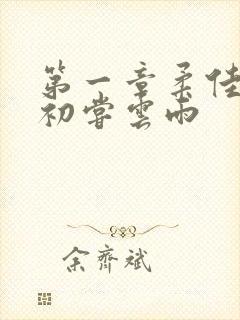 第一章柔佳
初嘗雲雨
余齊斌